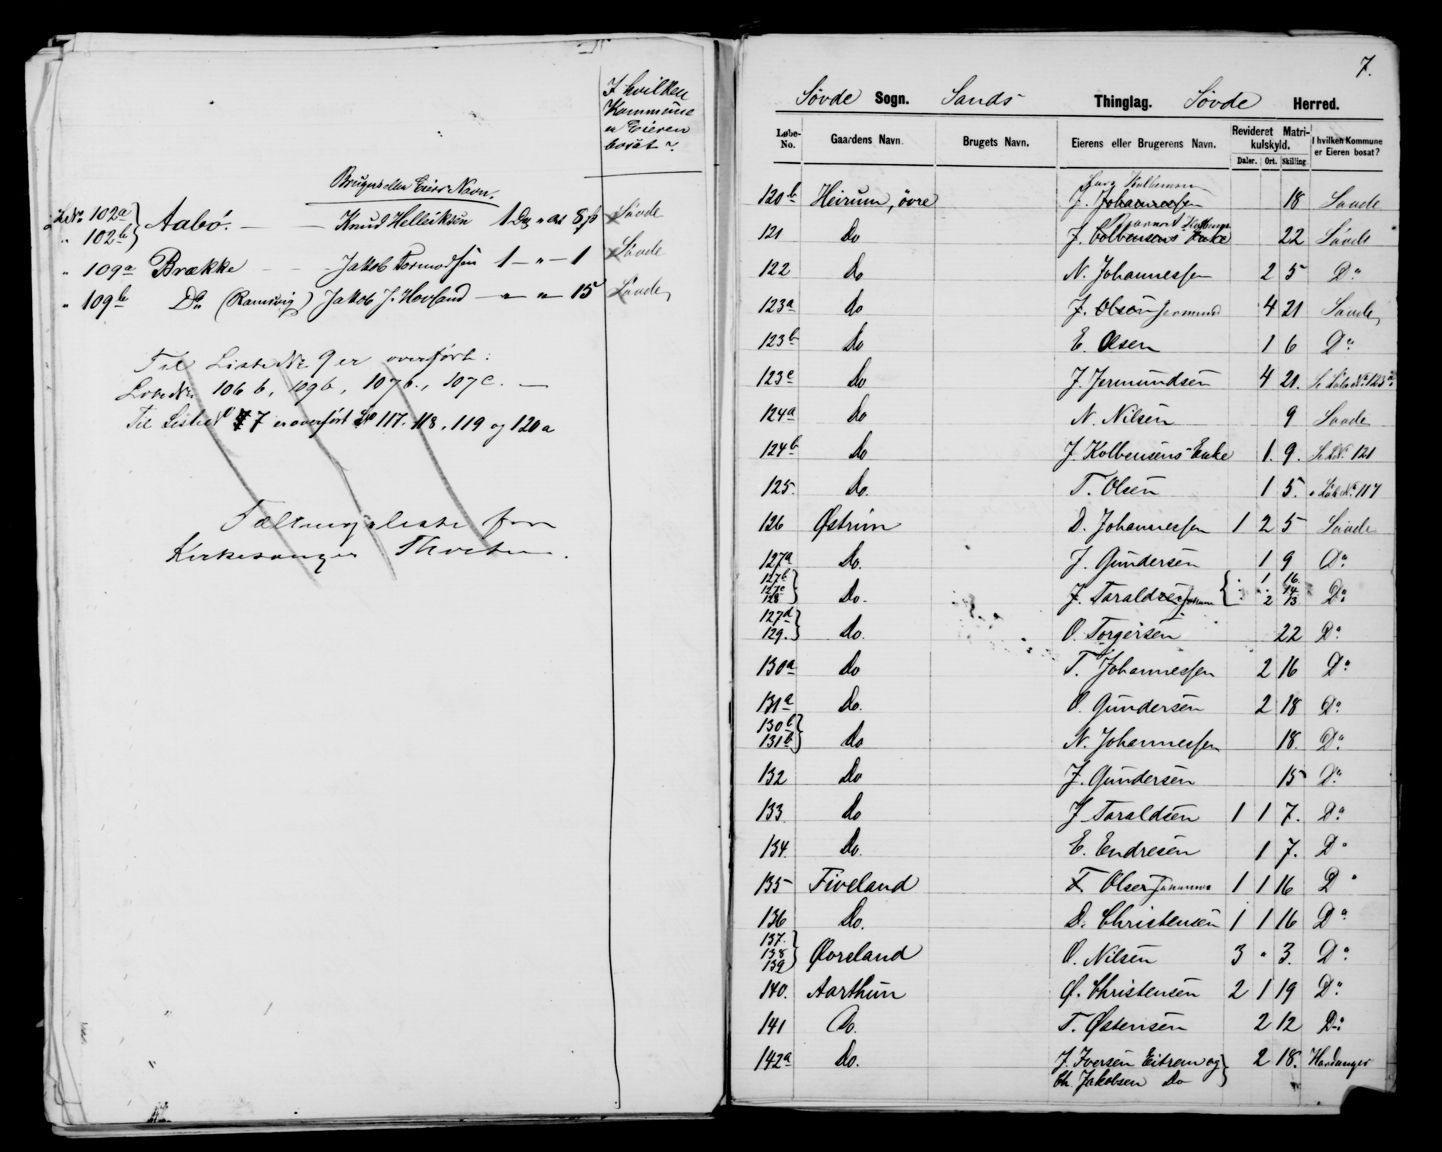 I hvilken
Kommune
er Eieren
bosat?
Brugers eller Eiers Navn.
LNo 102a Aabø. Knud Helliksen 1 Dlr " Ort 8 ß Søvde
" 102b
" 109a Brække Jakob Tormodsen 1 - " - 1 Søvde
" 109b Do (Ramsvig) Jakob J. Hovland - " - " - 15 Søvde
Til Liste No 9 er overført:
Løbe No 106b, 109b, 107b, 107c.
Til Liste No 7 er overført LNo 117, 118, 119 og 120a
Tællingsliste fra
Kirkesanger
7.
Søvde Sogn. Sands Thinglag. Søvde Herred.
Løbe-No. Gaardens Navn. Brugets Navn. Eierens eller Brugerens Navn. Revideret Matrikulskyld. I hvilken Kommune er Eieren bosat?
Daler. Ort. Skilling
120b Heirum, øvre J. Johannessen 18 Søvde
121 Do J. Kolbensens Enke 22 Søvde
122 Do N. Johannessen 2 5 Do
123a Do J. Olsen Jermund 4 21 Søvde
123b Do E. Olsen 1 6 Do
123c Do J. Jermundsen 4 21. Se Løbe No 123a
124a Do N. Nilsen 9 Søvde
124b Do J. Kolbensens Enke 1. 9. Se LNo 121
125. Do. T. Olsen 1 5. " Løb No 117
126 Østrim D. Johannessen 1 2 5 Søvde
127a Do. J. Gundersen 1 9 Do
127b 1 16
127c Do. J. Taraldsen Johan " 14 Do
128 2 13
127d
129. Do. O. Torgersen 22 Do
130a Do T. Johannessen 2 16 Do
131a Do. O. Gundersen 2 18 Do
130b
131b Do N. Johannessen 18. Do
132 Do J. Gundersen 15 Do
133 Do J. Taraldsen 1 1 7. Do
134. Do. E. Endresen 1 7. Do
135 Fiveland T. Olsen Johannes 1 1 16 Do
136 Do. D. Christensen 1 1 16 Do
137.
138 Øvreland O. Nilsen 3 " 3. Do
139
140. Aarthun Ø. Christensen 2 1 19 Do
141 Do. T. Østensen 2 12 Do
142a Do. J. Iversen Eitrem og 2 18. Hardanger
Ch. Jakobsen Do